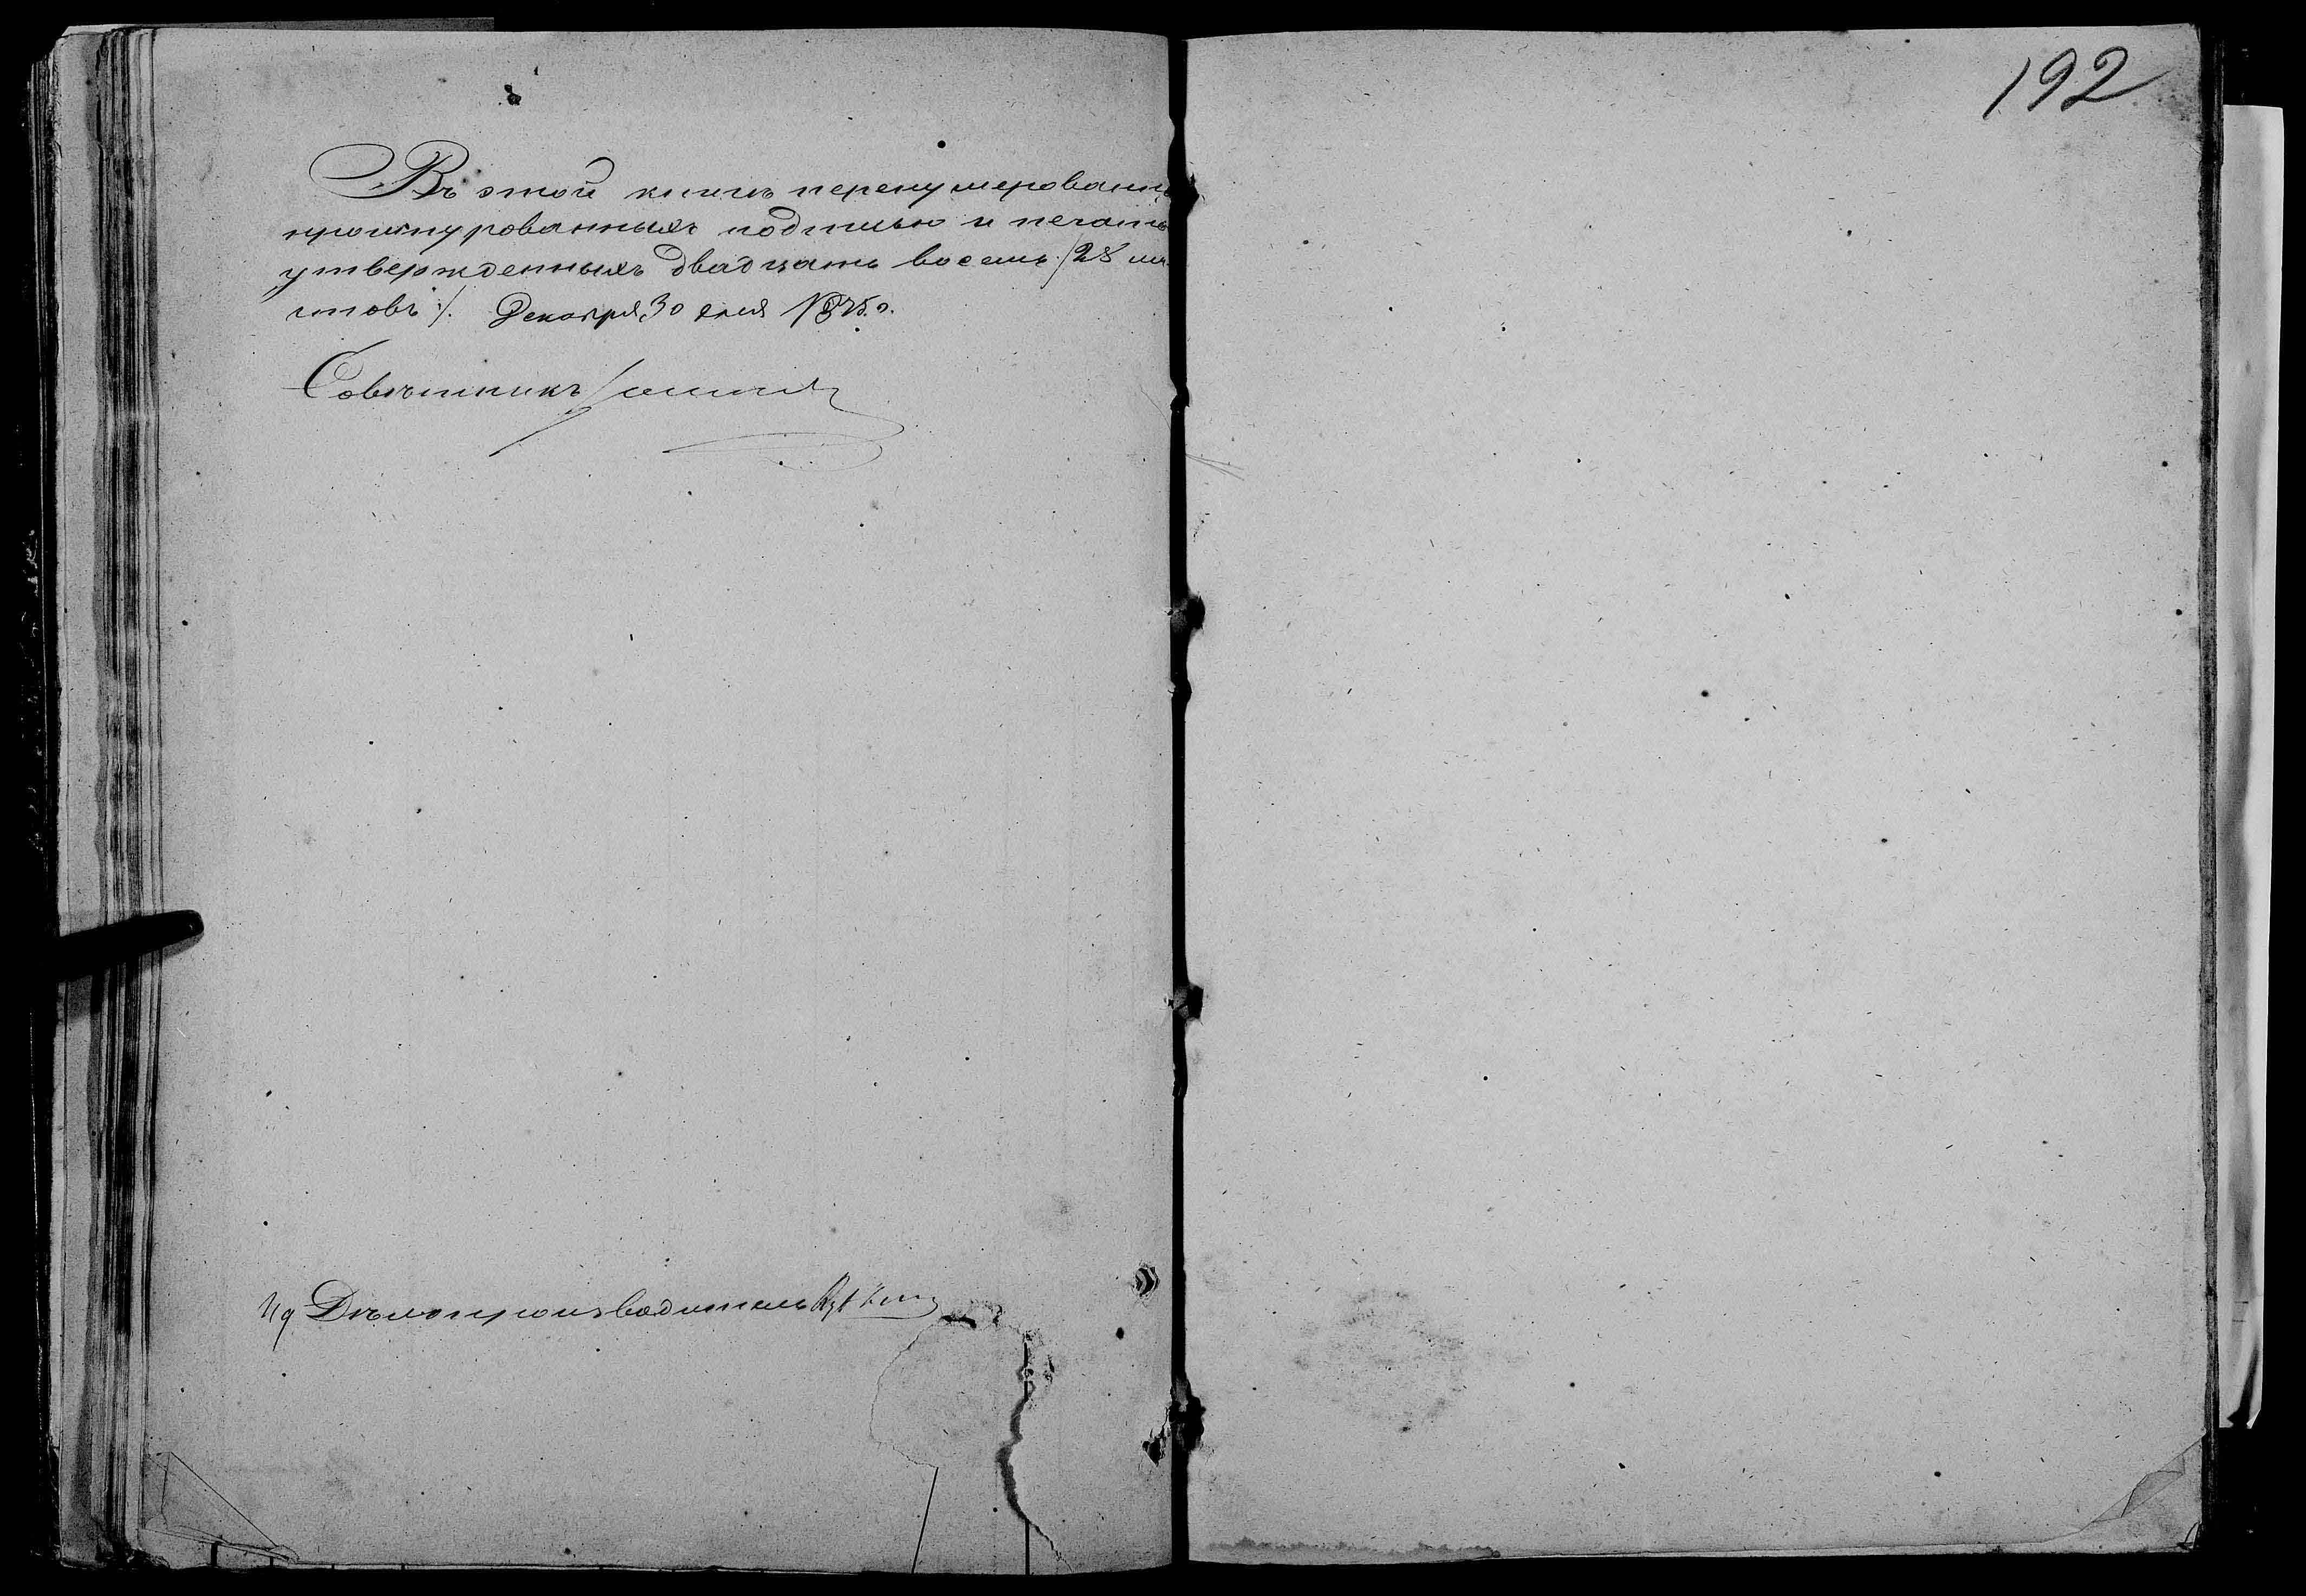 192
Въ этой книгѣ перенумерованны
прошнурованныхъ подписью и печатью
утвержденныхъ двадцать восемь /28 ли
стовъ/. Декабря 30 дня 1875 г.
Совѣтникъ
Ид Дѣлопроизводитель